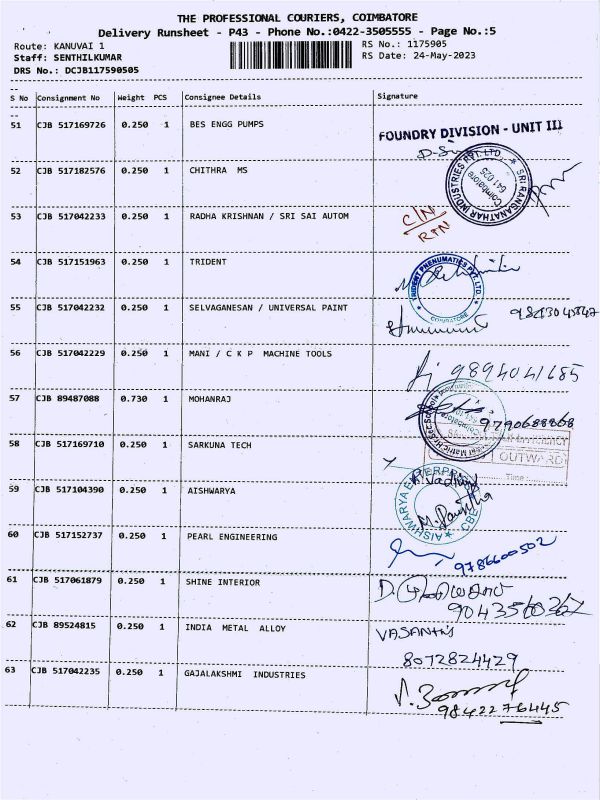 THE PROFESSIONAL COURIERS, COIMBATORE
Delivery Runsheet - P43 - Phone No.:0422-3505555 - Page No.:5
Route: KANUVAI 1
RS No.: 1175905
Staff: SENTHILKUMAR
RS Date: 24-May-2023
DRS No.: DCJB117590505
S No Consignment No Weight PCS Consignee Details Signature
51 CJB 517169726 0.250 1 BES ENGG PUMPS
FOUNDRY DIVISION - UNIT III
52 CJB 517182576 0.250 1 CHITHRA MS
SRI RANGANATHAR INDUSTRIES PVT. LTD.
Coimbatore
641 025
53 CJB 517042233 0.250 1 RADHA KRISHNAN / SRI SAI AUTOM
C/N
RTN
54 CJB 517151963 0.250 1 TRIDENT
TRIDENT PNEUMATICS PVT. LTD.
COIMBATORE
55 CJB 517042232 0.250 1 SELVAGANESAN / UNIVERSAL PAINT
56 CJB 517042229 0.250 1 MANI / C K P MACHINE TOOLS
9894041685
57 CJB 89487088 0.730 1 MOHANRAJ
9790688868
58 CJB 517169710 0.250 1 SARKUNA TECH
OUTWARD
Time:
59 CJB 517104390 0.250 1 AISHWARYA
AISHWARYA ENTERPRISES
CBE
60 CJB 517152737 0.250 1 PEARL ENGINEERING
9786600502
61 CJB 517061879 0.250 1 SHINE INTERIOR
62 CJB 89524815 0.250 1 INDIA METAL ALLOY
8072824429
63 CJB 517042235 0.250 1 GAJALAKSHMI INDUSTRIES
9842276445